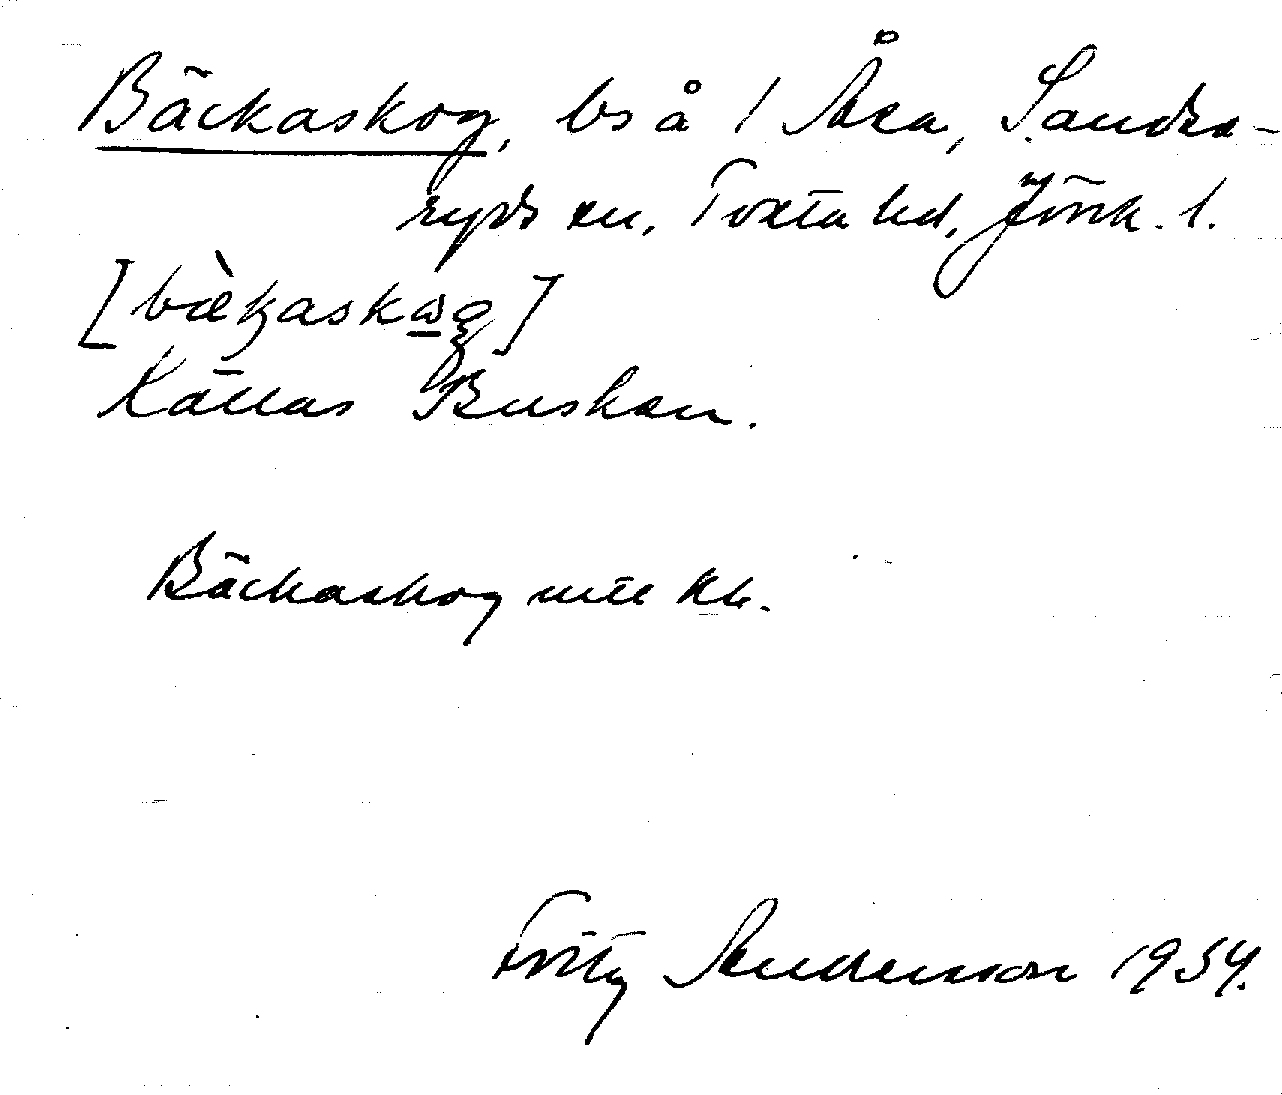 Bäckaskog, bs å 1 Åsa, Sandsa-
ryds sn, Tveta hd, Jönk. l.
[bæ̀kaskωg]
Källas Buskan.
Bäckaskog mtl Kb.
Fritz Andersson 1954.